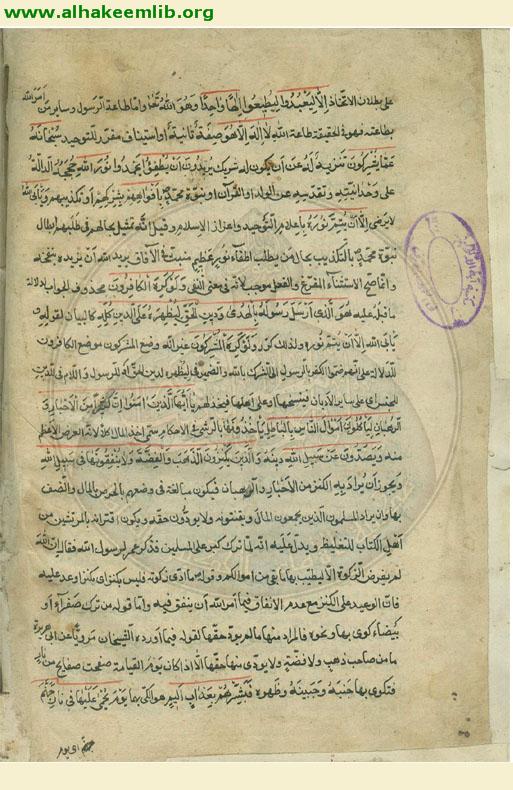 www.alhakeemlib.org
على بطلان الاتخاذ الا ليعبدوا ليطيعوا الها واحدا وهو الله تعالى واما طاعة الرسول وساير من امر الله
بطاعته فهو في الحقيقة طاعة الله لا اله الا هو صفة ثانية او استيناف مقرر للتوحيد سبحانه
عما يشركون تنزيه له عن ان يكون له شريك يريدون ان يطفؤا يخمدوا نور الله حجته الدالة
على وحدانيته وتقدسه عن الولد او القرآن او نبوة محمد بافواههم بشركهم او تكذيبهم ويابى الله
لا يرضى الا ان يتم نوره باعلاء التوحيد واعزاز الاسلام وقيل انه تمثيل لحالهم في طلبهم ابطال
نبوة محمد بالتكذيب بحال من يطلب اطفاء نور عظيم منبث في الآفاق يريد الله ان يزيده بنفخه
وانما صح الاستثناء المفرغ والفعل موجب لانه في معنى النفي ولو كره الكافرون محذوف الجواب لدلالة
ما قبله عليه هو الذي ارسل رسوله بالهدى ودين الحق ليظهره على الدين كله كالبيان لقوله و
يابى الله الا ان يتم نوره ولذلك كرر ولو كره المشركون غير انه وضع المشركون موضع الكافرون
للدلالة على انهم ضموا الكفر بالرسول الى الشرك بالله والضمير في ليظهره لدين الحق او للرسول واللام في الدين
للجنس اي على ساير الاديان فينسخها او على اهلها فيخذلهم يا ايها الذين آمنوا ان كثيرا من الاحبار و
الرهبان لياكلون اموال الناس بالباطل ياخذونها بالرشى في الاحكام سمي اخذ المال اكلا لانه الغرض الاعظم
منه ويصدون عن سبيل الله دينه والذين يكنزون الذهب والفضة ولا ينفقونها في سبيل الله
ويجوز ان يراد به الكثير من الاحبار والرهبان فيكون مبالغة في وصفهم بالحرص على المال والضن
بها وان يراد المسلمون الذين يجمعون المال ويقتنونه ولا يودون حقه ويكون اقترانه بالمرتشين من
اهل الكتاب للتغليظ ويدل عليه انه لما نزل كبر على المسلمين فذكر عمر لرسول الله فقال ان الله
لم يفرض الزكوة الا ليطيب بها ما بقي من اموالكم وقوله ما ادى زكوته فليس بكنز اي بكنز اوعد عليه
فان الوعيد على الكنز مع عدم الانفاق فيما امر الله ان ينفق فيه واما قوله من ترك صفراء او
بيضاء كوي بها ونحوه فالمراد منها ما لم يود حقها لقوله فيما اورده الشيخان مرويا عن ابي هريرة
ما من صاحب ذهب ولا فضة ولا يودي منها حقها الا اذا كان يوم القيامة صفحت صفايح من نار
فتكوى بها جنبه وجبينه وظهره فبشرهم بعذاب اليم هو الكي بها يوم يحمى عليها في نار جهنم
اي يوم